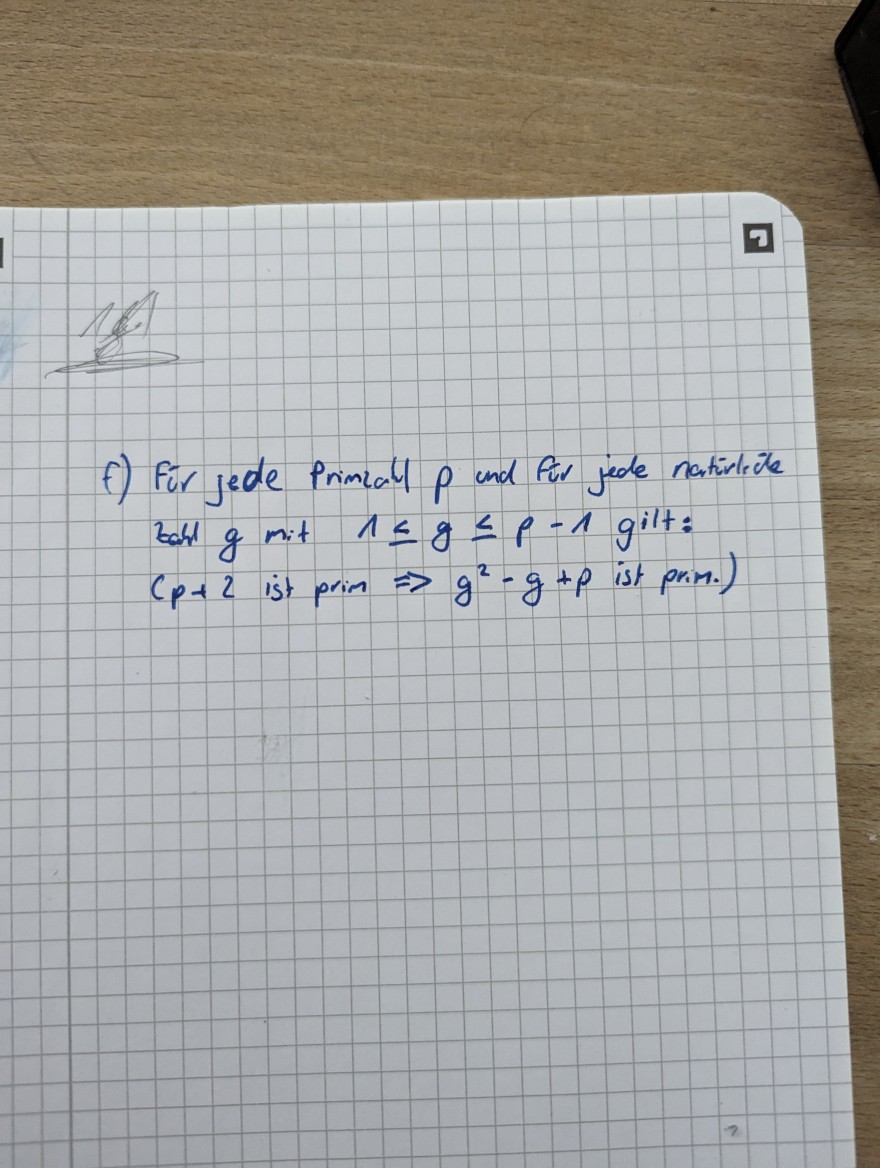 f) Für jede Primzahl p und für jede natürliche
Zahl g mit 1 ≤ g ≤ p - 1 gilt:
(p + 2 ist prim => g² - g + p ist prim.)